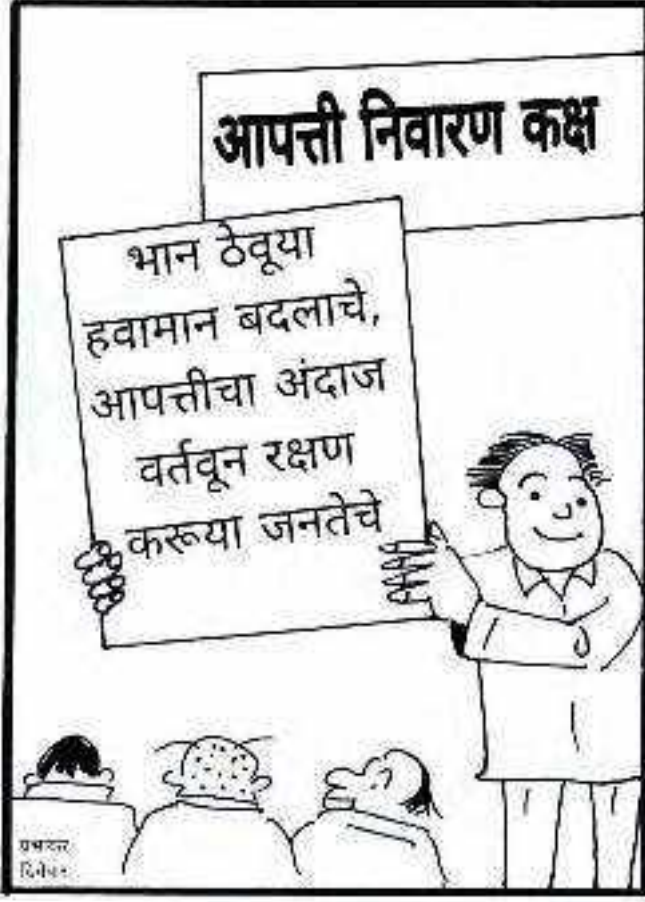 आपत्ती निवारण कक्ष
भान ठेवूया
हवामान बदलाचे,
आपत्तीचा अंदाज
वर्तवून रक्षण
करूया जनतेचे